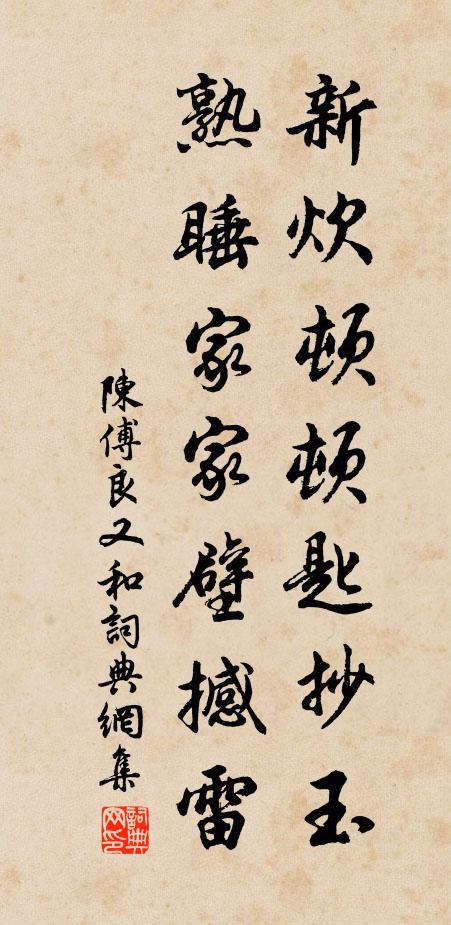 新炊頓頓匙抄玉
熟睡家家壁撼雷
陳傅良又和詞典網集
詞典网印